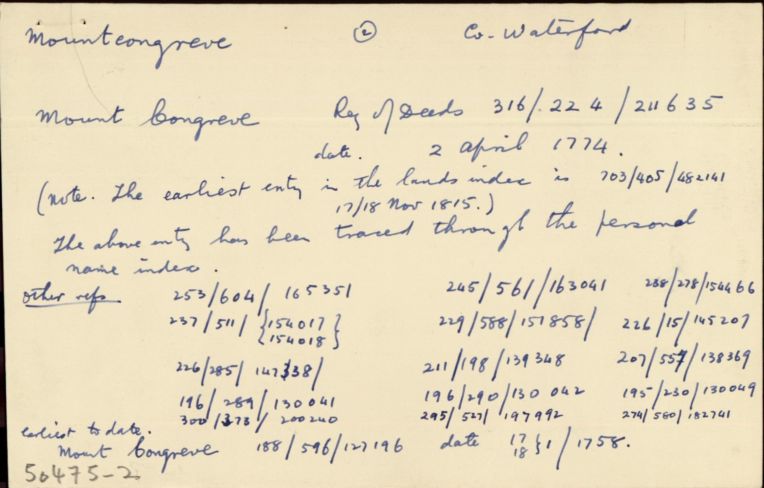 Mountcongreve ② Co. Waterford
Mount Congreve Reg of Deeds 316/224/211635
date. 2 april 1774.
(note. The earliest entry in the lands index is 703/405/482141
17/18 Nov 1815.)
The above entry has been traced through the personal
name index.
other refs 253/604/165351 245/561/163041 238/278/154466
237/511/{154017} 229/588/151858/ 226/15/145207
{154018}
226/285/147338/ 211/198/139348 207/557/138369
196/289/130041 196/290/130042 195/230/130049
300/373/200240 295/527/197992 274/580/182741
earliest to date.
Mount Congreve 188/596/127196 date 17/18}1/1758.
50475-2